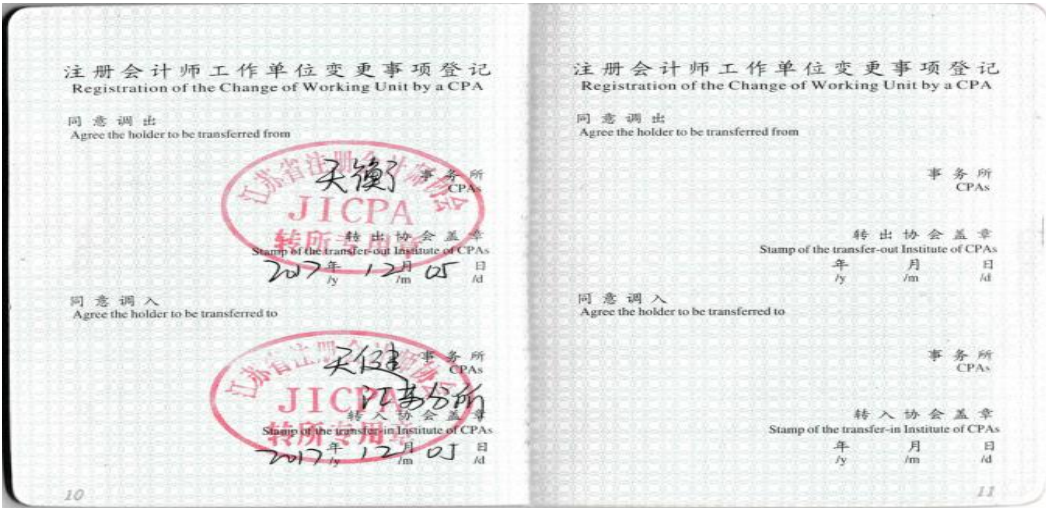 注册会计师工作单位变更事项登记
Registration of the Change of Working Unit by a CPA
同意调出
Agree the holder to be transferred from
江苏省注册会计师协会
天衡 事务所
CPAs
JICPA
转所专用章
转出协会盖章
Stamp of the transfer-out Institute of CPAs
2017年 12月 05日
/y /m /d
同意调入
Agree the holder to be transferred to
江苏省注册会计师协会
天健 事务所
CPAs
江苏分所
JICPA
转所专用章
转入协会盖章
Stamp of the transfer-in Institute of CPAs
2017年 12月 05日
/y /m /d
10
注册会计师工作单位变更事项登记
Registration of the Change of Working Unit by a CPA
同意调出
Agree the holder to be transferred from
事务所
CPAs
转出协会盖章
Stamp of the transfer-out Institute of CPAs
年 月 日
/y /m /d
同意调入
Agree the holder to be transferred to
事务所
CPAs
转入协会盖章
Stamp of the transfer-in Institute of CPAs
年 月 日
/y /m /d
11